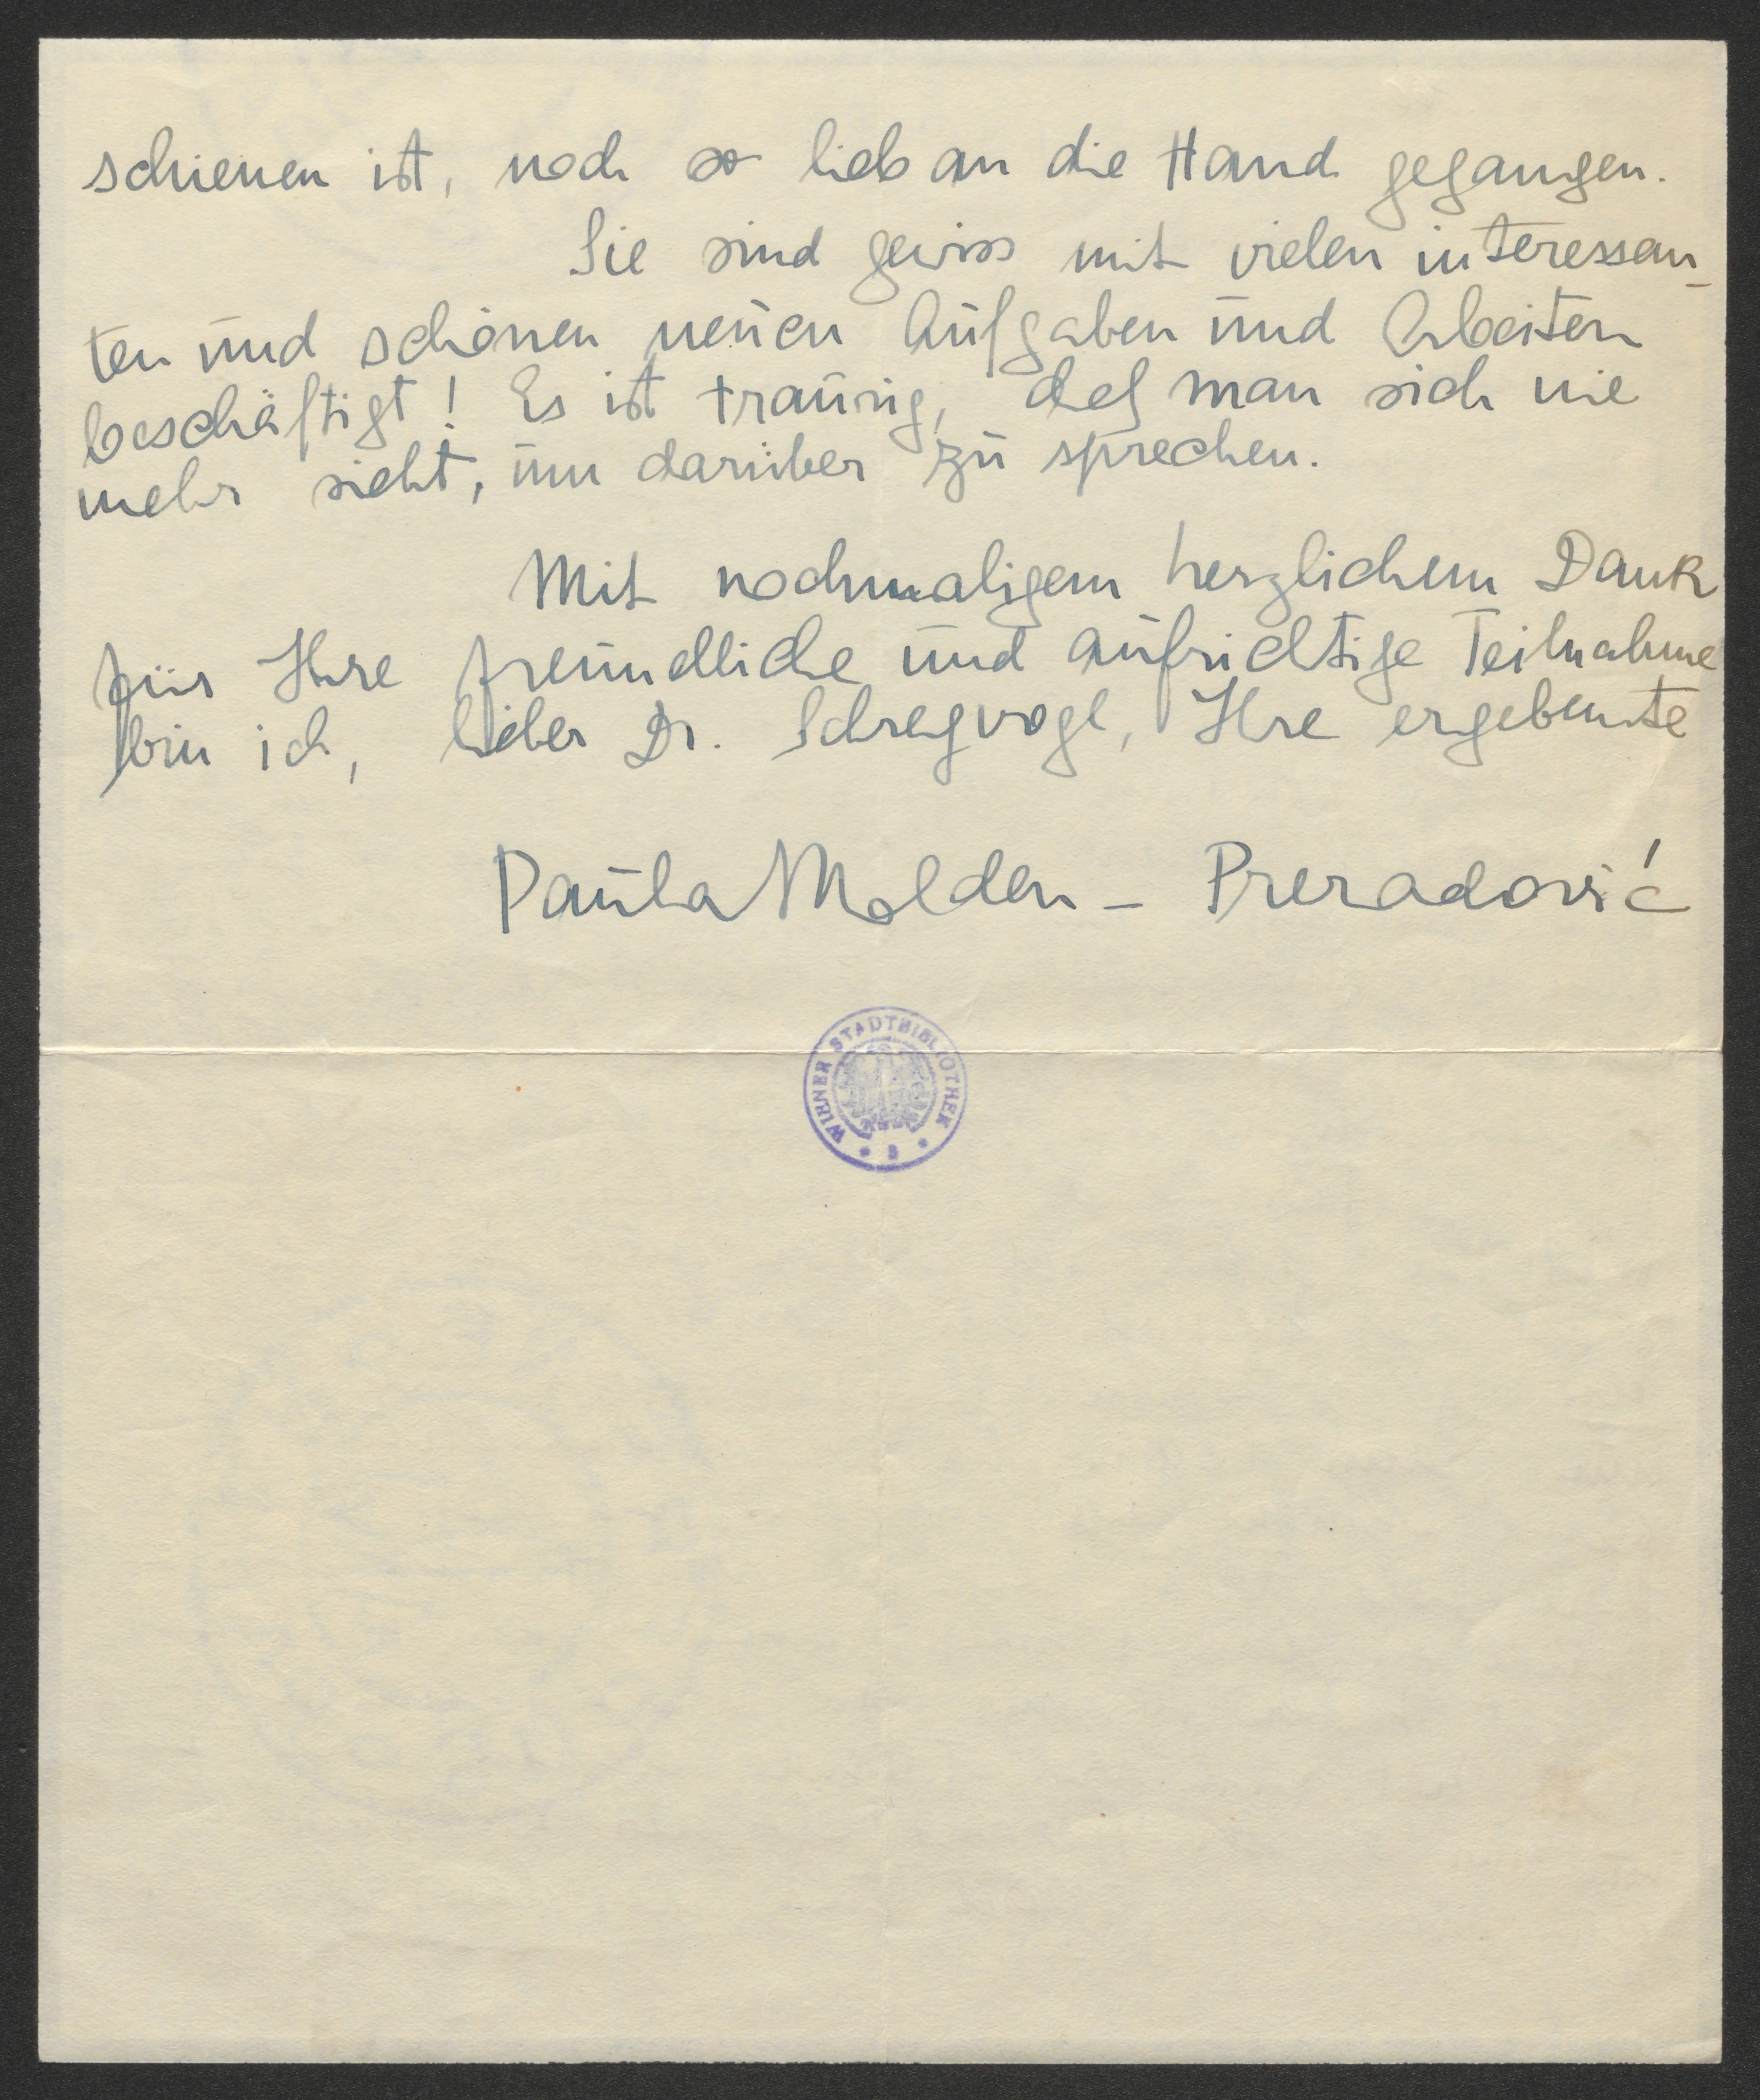 schienen ist, noch so lieb an die Hand gegangen.
Sie sind gewiss mit vielen interessan-
ten und schönen neuen Aufgaben und Arbeiten
beschäftigt! Es ist traurig, daß man sich nie
mehr sieht, um darüber zu sprechen.
Mit nochmaligem herzlichem Dank
für Ihre freundliche und aufrichtige Teilnahme
bin ich, lieber Dr. Schreyvogl, Ihre ergebenste
Paula Molden - Preradović
WIENER STADTBIBLIOTHEK